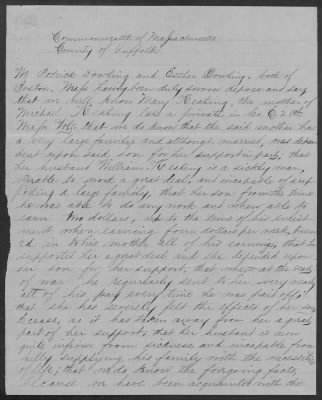 Commonwealth of Massachusetts
County of Suffolk
We Patrick Dowling and Esther Dowling, both of
Boston, Mass having been duly sworn depose and say
that we well know Mary Keating, the mother of
Michael Keating late a private in Co. C 28th
Mass Vols, that we do know that the said mother has
a very large family and although married, was depen
dent upon said son for her support in part, that
her husband William Keating is a sickly man,
unable to work a great deal, and incapable of sup
porting a large family, that her son from the time
he was able to do any work and when able to
earn two dollars, up to the time of his enlist
ment when earning four dollars per week, turn
ed in to his mother all of his earnings, that he
supported her a great deal and she depended upon
son for her support, that when at the seat
of war he regularly sent to her very nearly
all of his pay every time he was paid off;
that she has severely felt the effects of his
decease, as it has taken away from her a great
part of her support, that her husband is now
quite infirm from sickness and incapable from
fully supplying his family with the necessities
of life; that we do know the foregoing facts,
because we have been acquainted with the